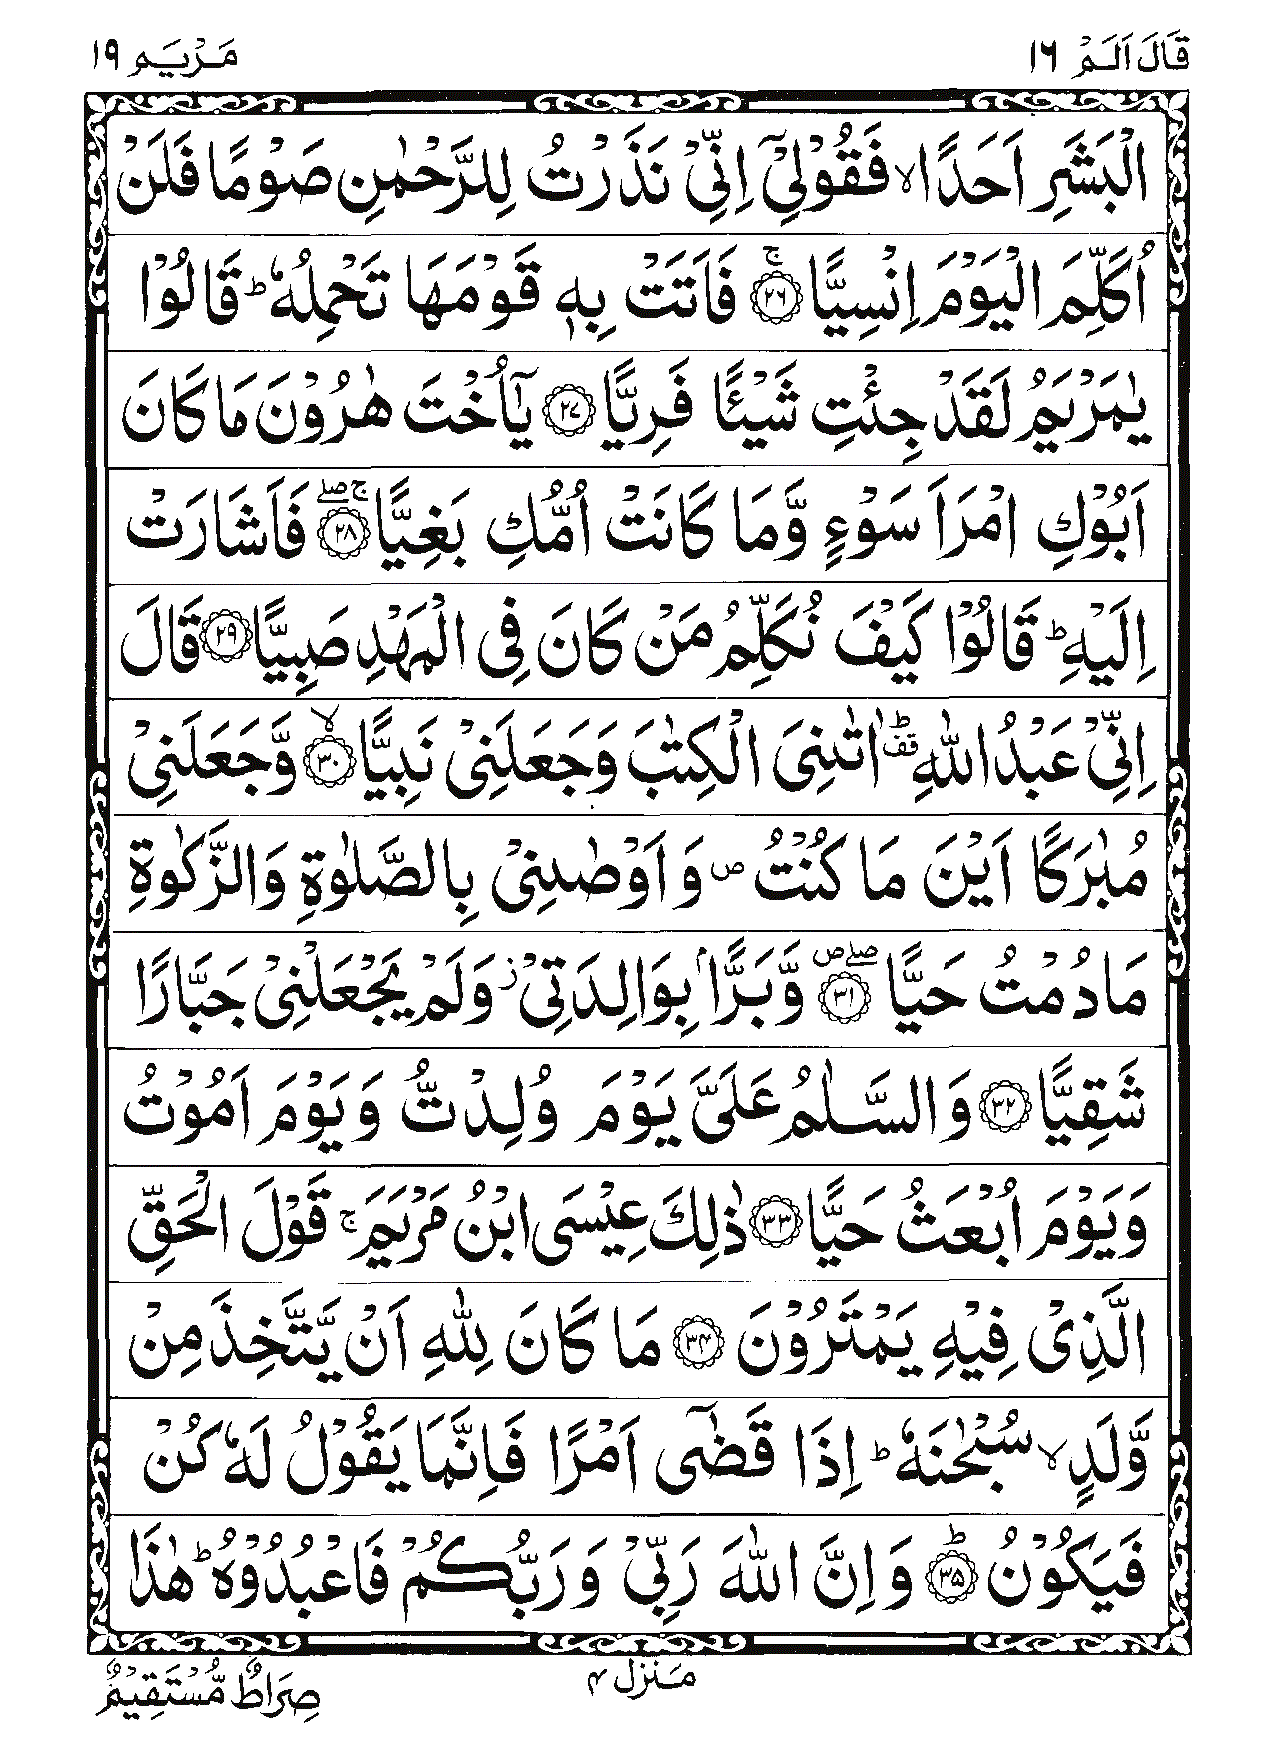 قَالَ اَلَمْ ١٦
مَرْيَم ١٩
الْبَشَرِ اَحَدًا ۙ فَقُوْلِيْۤ اِنِّيْ نَذَرْتُ لِلرَّحْمٰنِ صَوْمًا فَلَنْ
اُكَلِّمَ الْيَوْمَ اِنْسِيًّا ۚ ﴿۲۶﴾ فَاَتَتْ بِهٖ قَوْمَهَا تَحْمِلُهٗ ؕ قَالُوْا
يٰمَرْيَمُ لَقَدْ جِئْتِ شَيْـًٔا فَرِيًّا ﴿۲۷﴾ يٰۤاُخْتَ هٰرُوْنَ مَا كَانَ
اَبُوْكِ امْرَاَ سَوْءٍ وَّمَا كَانَتْ اُمُّكِ بَغِيًّا ۖۚ ﴿۲۸﴾ فَاَشَارَتْ
اِلَيْهِ ؕ قَالُوْا كَيْفَ نُكَلِّمُ مَنْ كَانَ فِى الْمَهْدِ صَبِيًّا ﴿۲۹﴾ قَالَ
اِنِّيْ عَبْدُ اللّٰهِ ؕ قف اٰتٰىنِيَ الْكِتٰبَ وَجَعَلَنِيْ نَبِيًّا ۙ ﴿۳۰﴾ وَّجَعَلَنِيْ
مُبٰرَكًا اَيْنَ مَا كُنْتُ ص وَاَوْصٰىنِيْ بِالصَّلٰوةِ وَالزَّكٰوةِ
مَا دُمْتُ حَيًّا ۖ ص ﴿۳۱﴾ وَّبَرًّاۢ بِوَالِدَتِيْ ز وَلَمْ يَجْعَلْنِيْ جَبَّارًا
شَقِيًّا ﴿۳۲﴾ وَالسَّلٰمُ عَلَيَّ يَوْمَ وُلِدْتُّ وَيَوْمَ اَمُوْتُ
وَيَوْمَ اُبْعَثُ حَيًّا ﴿۳۳﴾ ذٰلِكَ عِيْسَى ابْنُ مَرْيَمَ ۚ قَوْلَ الْحَقِّ
الَّذِيْ فِيْهِ يَمْتَرُوْنَ ﴿۳۴﴾ مَا كَانَ لِلّٰهِ اَنْ يَّتَّخِذَ مِنْ
وَّلَدٍ ۙ سُبْحٰنَهٗ ؕ اِذَا قَضٰۤى اَمْرًا فَاِنَّمَا يَقُوْلُ لَهٗ كُنْ
فَيَكُوْنُ ؕ ﴿۳۵﴾ وَاِنَّ اللّٰهَ رَبِّيْ وَرَبُّكُمْ فَاعْبُدُوْهُ ؕ هٰذَا
مَنزل ۴
صِرَاطٌ مُّسْتَقِيْمٌ